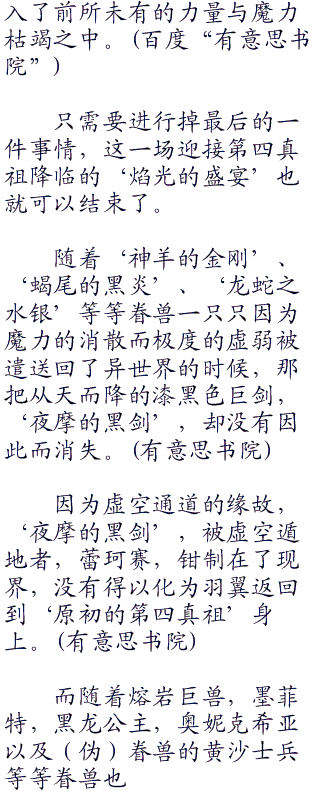 入了前所未有的力量与魔力
枯竭之中。(百度“有意思书
院”)
只需要进行掉最后的一
件事情，这一场迎接第四真
祖降临的‘焰光的盛宴’也
就可以结束了。
随着‘神羊的金刚’、
‘蝎尾的黑炎’、‘龙蛇之
水银’等等眷兽一只只因为
魔力的消散而极度的虚弱被
遣送回了异世界的时候，那
把从天而降的漆黑色巨剑，
‘夜摩的黑剑’，却没有因
此而消失。(有意思书院)
因为虚空通道的缘故，
‘夜摩的黑剑’，被虚空遁
地者，蕾珂赛，钳制在了现
界，没有得以化为羽翼返回
到‘原初的第四真祖’身
上。(有意思书院)
而随着熔岩巨兽，墨菲
特，黑龙公主，奥妮克希亚
以及（伪）眷兽的黄沙士兵
等等眷兽也